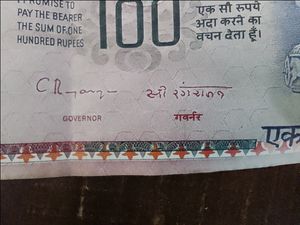 I PROMISE TO
PAY THE BEARER
THE SUM OF ONE
HUNDRED RUPEES
100
एक सौ रुपये
अदा करने का
वचन देता हूँ।
श्री रंगराजन
GOVERNOR
गवर्नर
एक